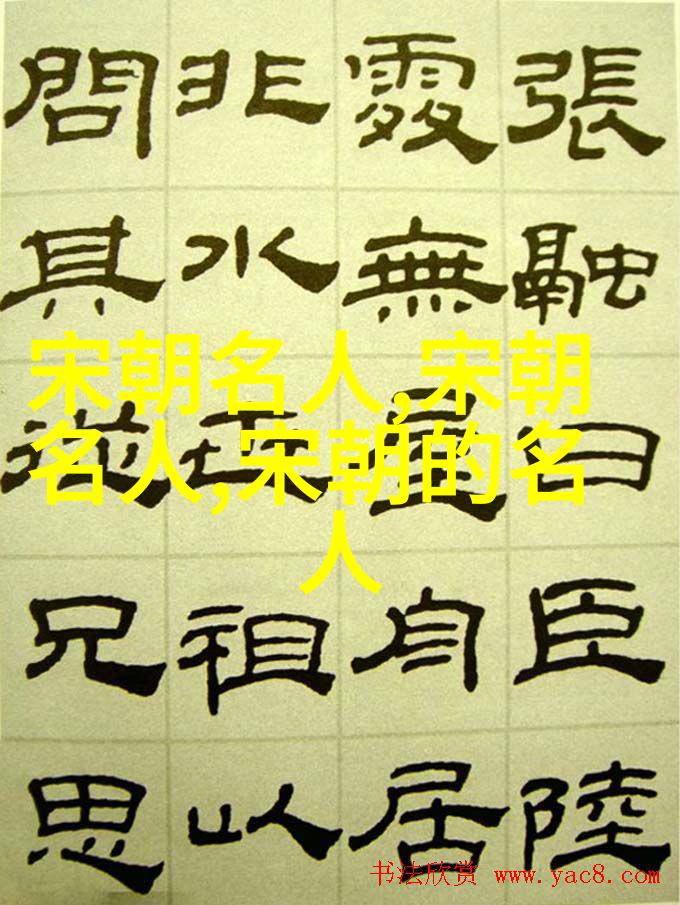 宋朝名人,宋朝
名人,宋朝的名
人
張融曰臣陸
處無屋舟居
非水世祖以
問其從兄思
书法欣赏 www.yac8.com